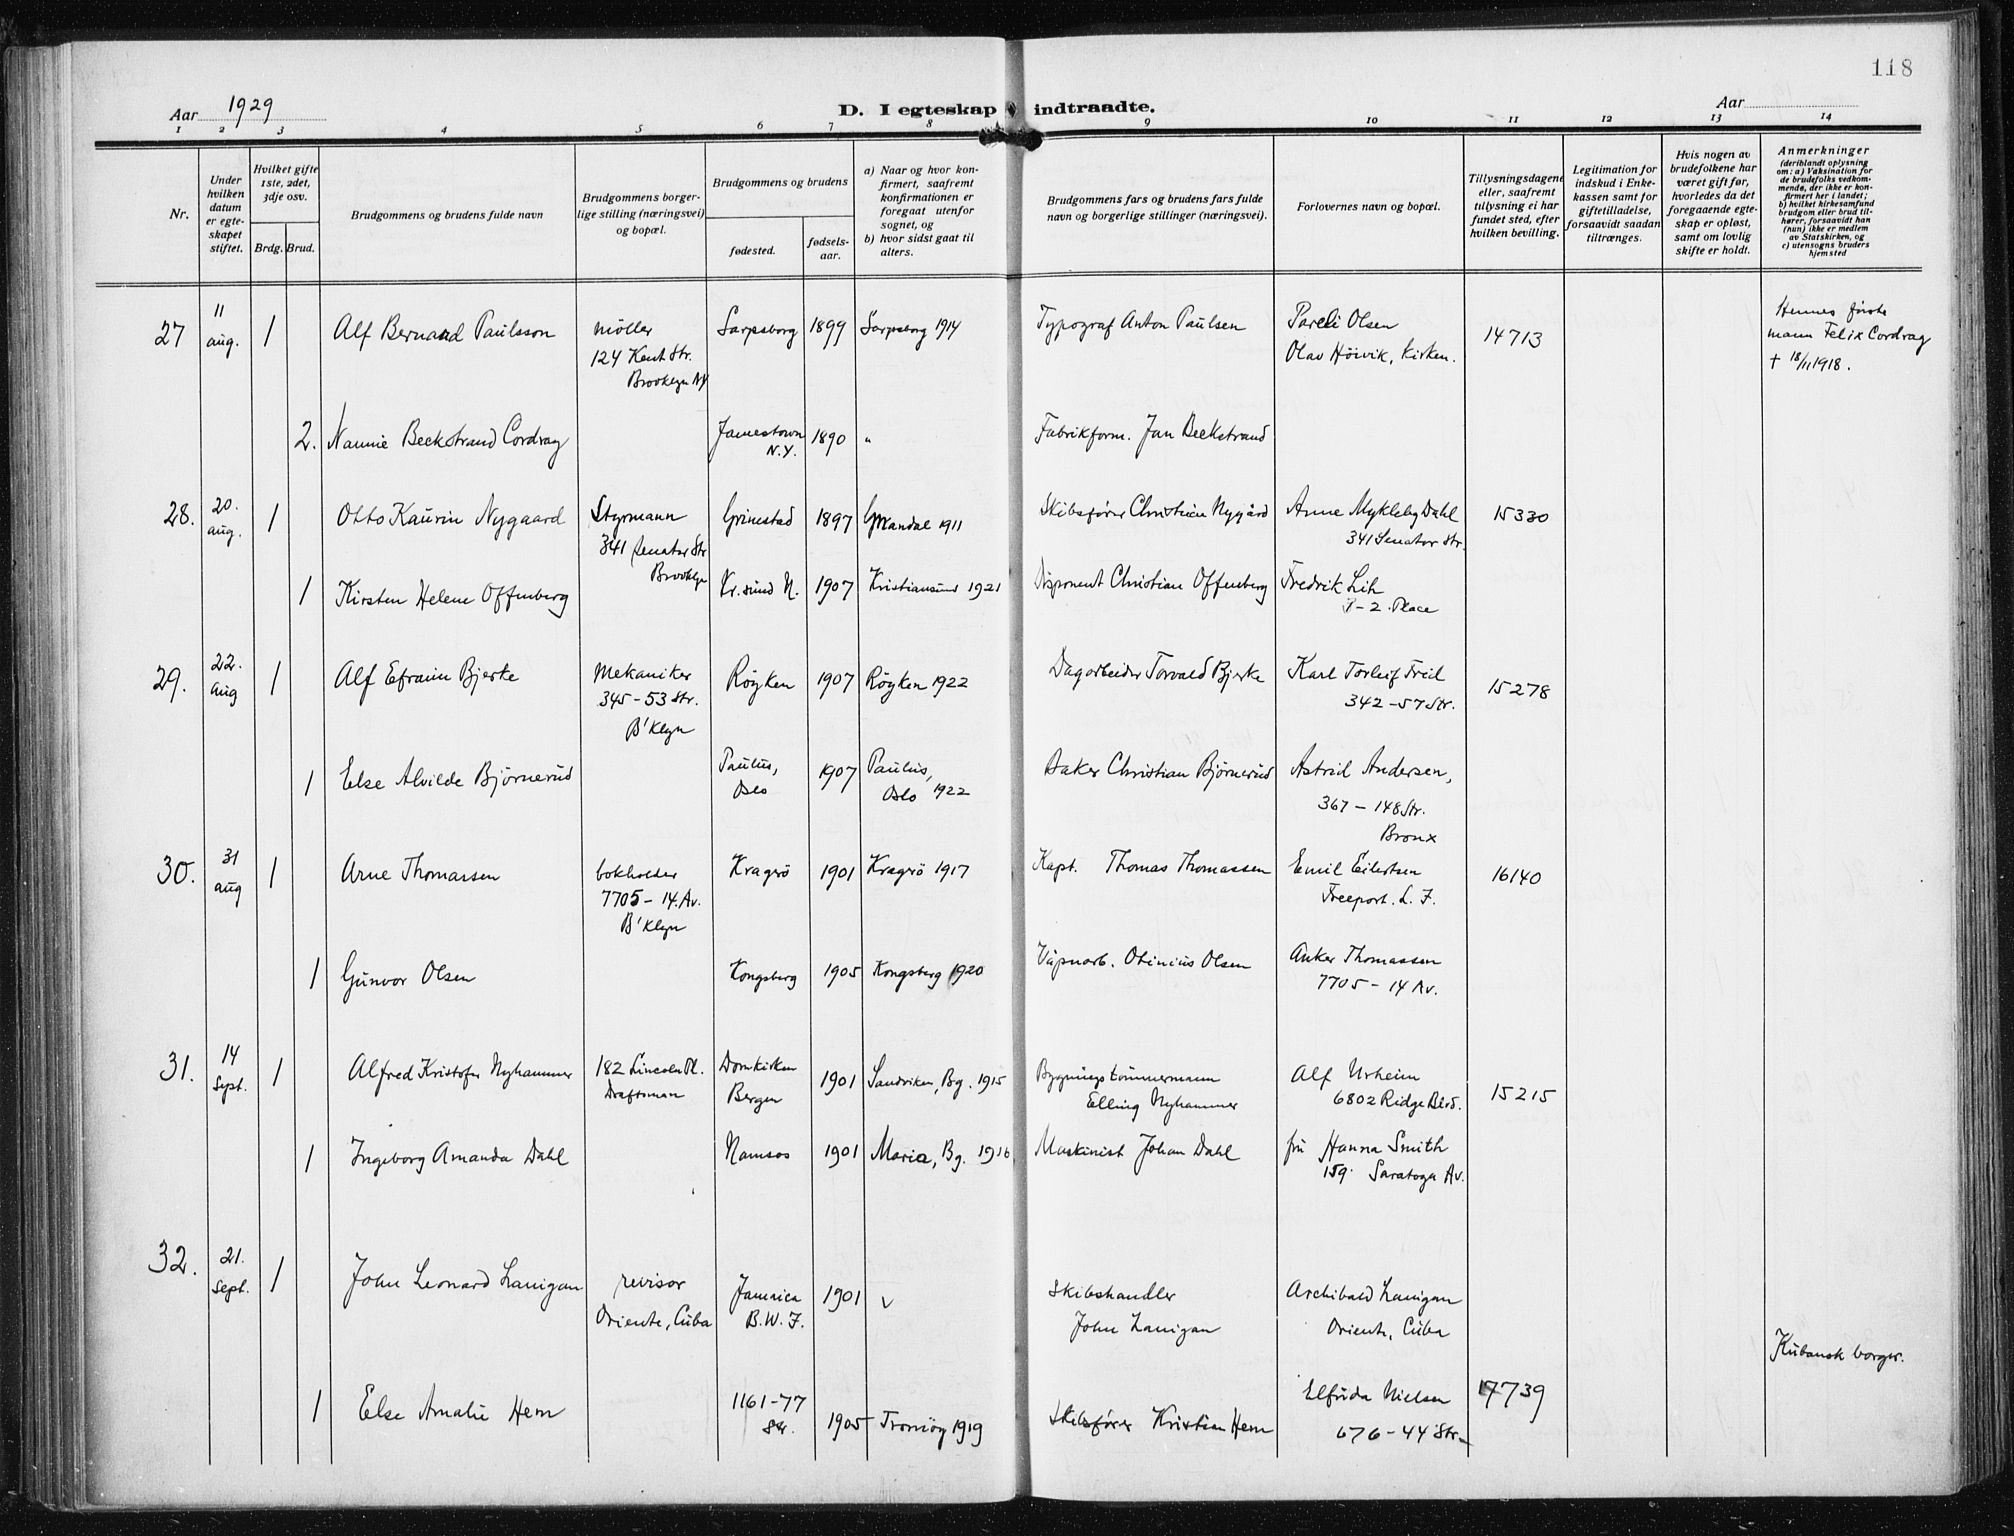 118
Aar 1929
D. I egteskap indtraadte.
Aar
1 2 3 4 5 6 7 8 9 10 11 12 13 14
Nr.
Under hvilken datum er egteskapet stiftet.
Hvilket gifte 1ste, 2det, 3dje osv.
Brdg. Brud.
Brudgommens og brudens fulde navn
Brudgommens borgerlige stilling (næringsvei) og bopæl.
Brudgommens og brudens
fødested.
fødselsaar.
a) Naar og hvor konfirmert, saafremt konfirmationen er foregaat utenfor sognet, og
b) hvor sidst gaat til alters.
Brudgommens fars og brudens fars fulde navn og borgerlige stillinger (næringsvei).
Forlovernes navn og bopæl.
Tillysningsdagene eller, saafremt tillysning ei har fundet sted, efter hvilken bevilling.
Legitimation for indskud i Enkekassen samt for giftetilladelse, forsaavidt saadan tiltrænges.
Hvis nogen av brudefolkene har været gift før, hvorledes da det foregaaende egteskap er opløst, samt om lovlig skifte er holdt.
Anmerkninger
(deriblandt oplysning om: a) Vaksination for de brudefolks vedkommende, der ikke er konfirmert her i landet; b) hvilket kirkesamfund brudgom eller brud tilhører, forsaavidt han (hun) ikke er medlem av Statskirken, og c) utensogns bruders hjemsted
27 11 aug. 1 Alf Bernard Paulsson møller Sarpsborg 1899 Sarpsborg 1914 Typograf Anton Paulsen Pareli Olsen 14713 Hennes første
124 Kent Str. Olav Höivik, Kirken. mann Felix Cordray
Brooklyn N.Y. † 18/11 1918.
2. Nannie Beckstrand Cordray Jamestown 1890 " Fabrikform. Jan Beckstrand
N.Y.
28. 20. aug. 1 Otto Kaurin Nygaard Styrmann Grimestad 1897 Mandal 1911 Skibsfører Christian Nygård Anne Mykleby Dahl 15330
341 Senator Str 341 Senator Str.
Brooklyn
1 Kirsten Helene Offenberg Kr.sund N. 1907 Kristiansund 1921 Disponent Christian Offenberg Fredrik Lih
7-2. Place
29. 22. Aug 1 Alf Efraim Bjerke Mekaniker Røyken 1907 Røyken 1922 Dagarbeider Torvald Bjerke Karl Torleif Freil 15278
345-53 Str. 342-57 Str.
B'klyn
1 Else Alvilde Bjørnerud Paulus, 1907 Paulus, Baker Christian Bjørnerud Astrid Andersen,
Oslo Oslo 1922 367-148 Str.
Bronx
30. 31 aug 1 Arne Thomassen bokholder Kragerö 1901 Kragerö 1917 Kapt. Thomas Thomassen Emil Eilertsen 16140
7705-14. Av. Freeport. L. I.
B'klyn
1 Gunvor Olsen Kongsberg 1905 Kongsberg 1920 Våpnarb. Otinius Olsen Anker Thomassen
7705-14 Av.
31. 14 Sept. 1 Alfred Kristofer Nyhammer 182 Lincoln Pl. Domkirken 1901 Sandviken, Bg. 1915 Bygningstømmermann Alf Urheim 15215
Draftsman Bergen Elling Nyhammer 6802 Ridge Blvd.
1 Ingeborg Amanda Dahl Namsos 1901 Maria, Bg. 1916 Maskinist Johan Dahl fru Hanna Smith
159 Saratoga Av.
32. 21. Sept. 1 John Leonard Lanigan revisor Jamaica 1901 v Skibshandler Archibald Lanigan
Oriente, Cuba B.W.I. John Lanigan Oriente, Cuba
Kubansk borger.
1 Else Amalie Hem 1161-77 1905 Tromöy 1919 Skibsfører Kristian Hem Elfrida Nielsen 17739
Str. 676-44 Str.